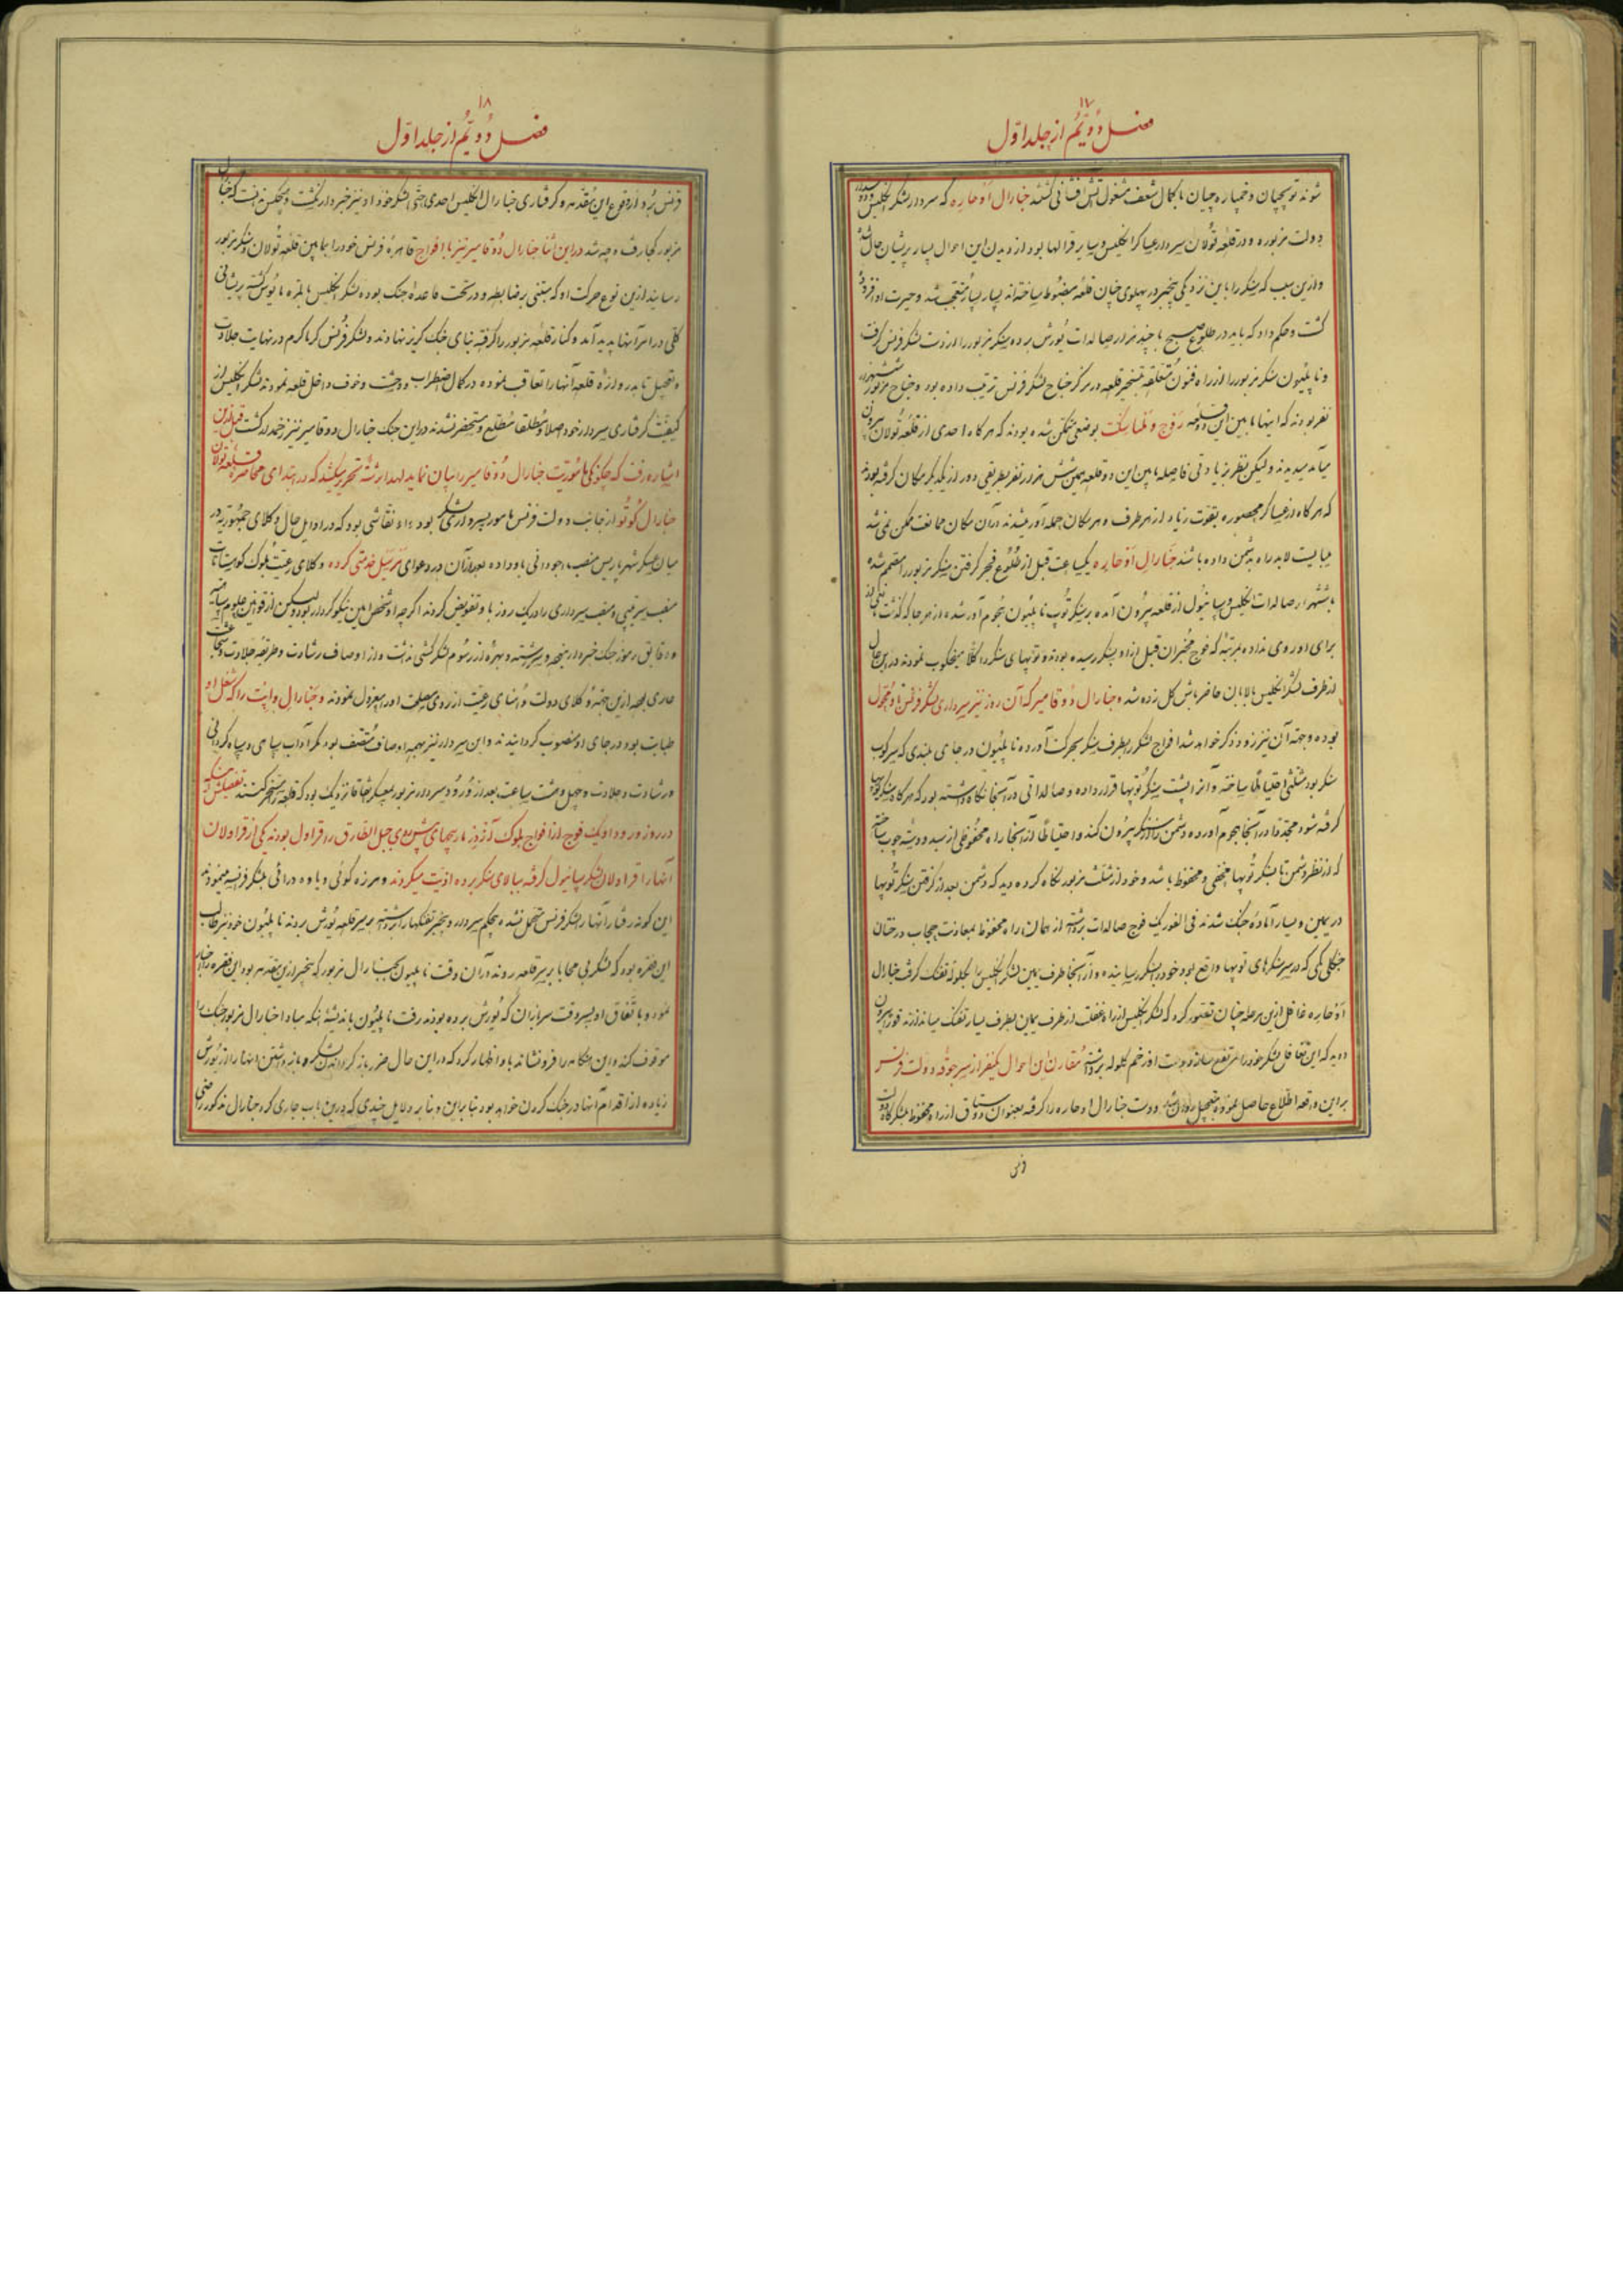 ۱۷
فصل دُوّیُم از جلد اوّل
شوند توپچیان و خمپاره چیان با کمال شعف مشغول آتش افشانی گشتند جنارال اُوحاره که سردار لشکر انگلیس و
دولت مزبوره و در قلعه تُولان سردار عساکر انگلیس و سایر قرالها بود از دیدن این احوال بسیار پریشان حال شد
و ازین سبب که سنکر را باین نزدیکی بیخبر در پهلوی چنان قلعه مضبوط ساخته‌اند بسیار بسیار متعجب شد و حیرت او افزوده
گشت و حکم داد که باید در طلوع صبح با چند هزار صالدات یُورش برده سنکر مزبور را از دست لشکر فرنس گرفت
و ناپلیُون سنکر مزبور را از راه فنون متعلقه بتسخیر قلعه در مرکز جناح لشکر فرنس ترتیب داده بود و جناح مزبور
نفر بودند که اینها مابین این دو قلعه بوضعی متمکن شده بودند که هرگاه احدی از قلعه تُولان بیرون
میآمد میدیدند ولیکن نظر بزیادتی فاصله مابین این دو قلعه همین شش هزار نفر بطریقی دور از یکدیگر مکان گرفته بودند
که هرگاه از عساکر محصوره بقوت زیاد از هر طرف و هر مکان حمله‌آور میشدند در آن مکان ممانعت ممکن نمی شد
میبایست لابد راه بدشمن داده باشند جنارال اُوحاره یکساعت قبل از طلُوع فجر گرفتن سنکر مزبور را مصمم شده
با ششهزار صالدات انگلیس و سپانیول از قلعه بیرُون آمده بر سنکر تُوپ ناپلیُون هجُوم آور شده از هر جا که گذشت
برای او روی نداده بمرتبهٔ که فوج مخبران قبل از او بسنکر رسیده بودند و توپهای سنکر را کلاً میخکوب نمودند در این حال
از طرف لشکر انگلیس بالابان حاضر باش کل زده شد و جنارال دُوقامیر که آن روز نیز سرداری لشکر فرنس باو محول
بوده و جهة آن نیز زود ذکر خواهد شد افواج لشکر را بطرف سنکر بحرکت آورده ناپلیُون در جای بلندی که سرکوب
سنکر بود مثلثی احتیاطاً ساخته و آنرا پشت سنکر تُوپها قرار داده و صالداتی در آنجا نگاه داشته بود که هرگاه سنکر توپها
گرفته شود مجدداً در آنجا هجوم آورده دشمن را از سنکر بیرُون کند و احتیاطاً از آنجا راه محفُوظی از سبد و ریشه چوب ساخته
که از نظر دشمن تا بسنکر تُوپها مخفی و محفوظ باشد و خود از مثلث مزبور نگاه کرده دید که دشمن بعد از گرفتن سنکر تُوپها
در یمین و یسار آماده جنک شدند فی الفور یک فوج صالدات برداشته از همان راه محفوظ بمعاونت حجاب درختان
جنگلی کمی که در سر سنکرهای توپها واقع بود خود را بسنکر رسانیده و از آنجا طرف یمین لشکر انگلیس را بگلوله تفنک گرفت جنارال
اُوحاره غافل ازین مرحله چنان تصور کرد که لشکر انگلیس از راه غفلت از طرف یمین بطرف یسار تفنک میاندازند فوراً بیرون
دوید که این تغافل لشکر خود را مرتفع سازد دست او زخم گلوله برداشت مُقارن این احوال یکنفر از سرجوقه دولت فرنس
براین واقعه اطلاع حاصل نموده بتعجیل دست جنارال اوحاره را گرفته بعنوان دوستاق از راه محفوظ بلشکرگاه دولت
فرنس
۱۸
فصل دُوّیُم از جلد اوّل
فرنس بُرد از وقوع این مقدمه و گرفتاری جنارال انگلیس احدی حتی لشکر خود او نیز خبردار نگشت و هیچکس ندانست که جنارال
مزبور کجا رفت و چه شد در این اثنا جنارال دُوقامیر نیز با افواج قاهره فرنس خود را بمابین قلعه تُولان و سنکر مزبور
رسانید ازین نوع حرکت او که مبتنی بر ضابطه و در تحت قاعده جنک بوده لشکر انگلیس بالمره مأیوس گشته پریشانی
کلی در امر آنها پدید آمد و کنار قلعه مزبور را گرفته بنای جنک گریز نهادند و لشکر فُرنس گرماگرم در نهایت جلادت
و تعجیل تا بدروازهٔ قلعه آنها را تعاقب نموده در کمال اضطراب و وحشت و خوف داخل قلعه نمودند لشکر انگلیس از
کیفیت گرفتاری سردار خود اصلا و مُطلقا مُطلع و مستحضر نشدند در این جنک جنارال دوقامیر نیز زخمدار گشت قبل ازین
اشاره رفت که چگونگی مأمُوریت جنارال دُوقامیر را بیان نماید لهذا برشتهٔ تحریر میکشد که در ابتدای محاصره قلعه تولان
جنارال کُوتُو از جانب دولت فرنس مامور بسرداری لشکر بود و او نقاشی بود که در اوایل حال وکلای جمهُوریه در
میان عسکر شهر پاریس منصب اجودانی باو داده بعد از آن در دعوای مرسیل خدمتی کرده و وکلای رعیّت بلوک کوهستانات
منصب سرتیپی و منصب سرداری را در یک روز باو تفویض کردند اگرچه او شخص امین نیکو کردار بود ولیکن از قوانین علوم سپاه
و دقایق رموز جنک خبردار نبوده و سررشته و بهره از رسُوم لشکرکشی نداشت و از اوصاف رشادت و طریقهٔ جلادت و شجاعت
عاری بود ازین جهة وکلای دولت و اُمنای رعیت از روی مصلحت او را معزول نمودند و جنارال واپت را که شغل او
طبابت بود در جای او منصوب گردانیدند و این سردار نیز بهمه اوصاف متّصف بود مگر آداب سپاهی و سپاه گردانی
و رشادت و جلادت و چهل و هشت ساعت بعد از وُرُود سردار مزبور بعسکر اتفاقاً نزدیک بود که قلعه را مسخر کنند تفصیلش اینکه
در روز ورود او یک فوج از افواج بلوک آن روز مارپیچهای پیش روی جبل الطارق را قراول بودند یکی از قراولان
آنها را قراولان لشکر سپانیول گرفته ببالای سنکر برده اذیت میکردند و هرزه گوئی و یاوه درائی بلشکر فرانسه مینمودند
این گونه رفتار آنها را لشکر فرنس متحمّل نشده بیحکم سردار و بیخبر تفنکها را برداشته بر سر قلعه یُورش بردند ناپلیُون خود نیز طالب
این فقره بود که لشکر بی محابا بر سر قلعه روند در آن وقت ناپلیون بجنارال مزبور که بیخبر ازین مقدمه بود این فقره را اخبار
نمود و باتّفاق او بسروقت سربازان که یُورش برده بودند رفت ناپلیُون باندیشهٔ اینکه مبادا جنارال مزبور جنک را
موقوف کند و این هنگامه را فرو نشاند باو اظهار کرد که در این حال ضرر باز گردانیدن لشکر و بازداشتن اینها را از یُورش
زیاده از اقدام آنها در جنک کردن خواهد بود بنابراین و بنابر دلایل چندی که درین باب جاری کرد جنارال مذکور راضی